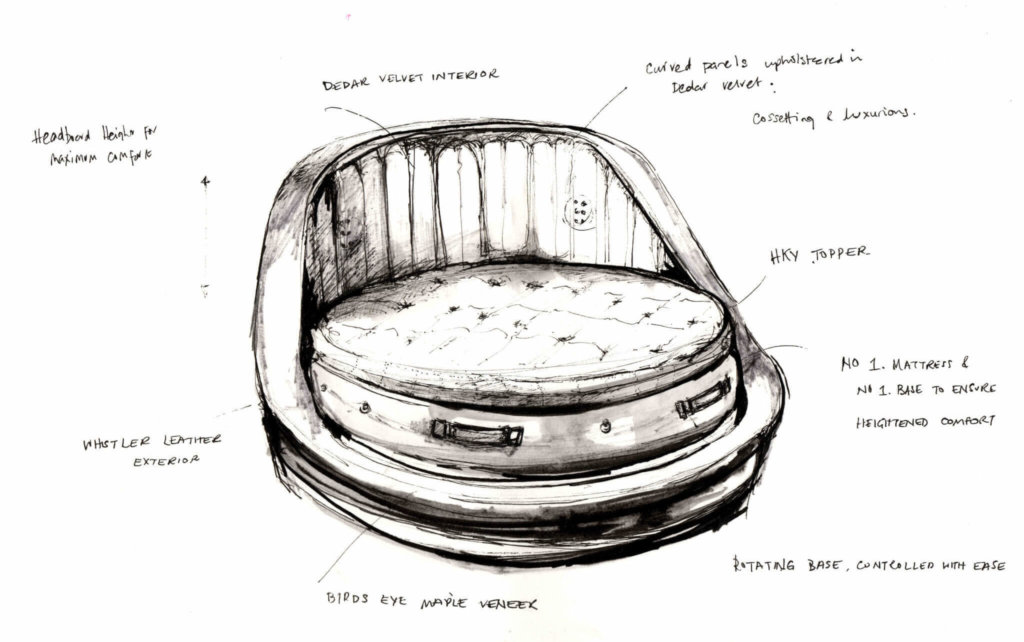 DEDAR VELVET INTERIOR
Curved panels upholstered in
Dedar velvet.
Cossetting & luxurious.
Headboard Height for
maximum comfort
HKY TOPPER
NO 1. MATTRESS &
NO 1. BASE TO ENSURE
HEIGHTENED COMFORT
WHISTLER LEATHER
EXTERIOR
ROTATING BASE, CONTROLLED WITH EASE
BIRDS EYE MAPLE VENEER